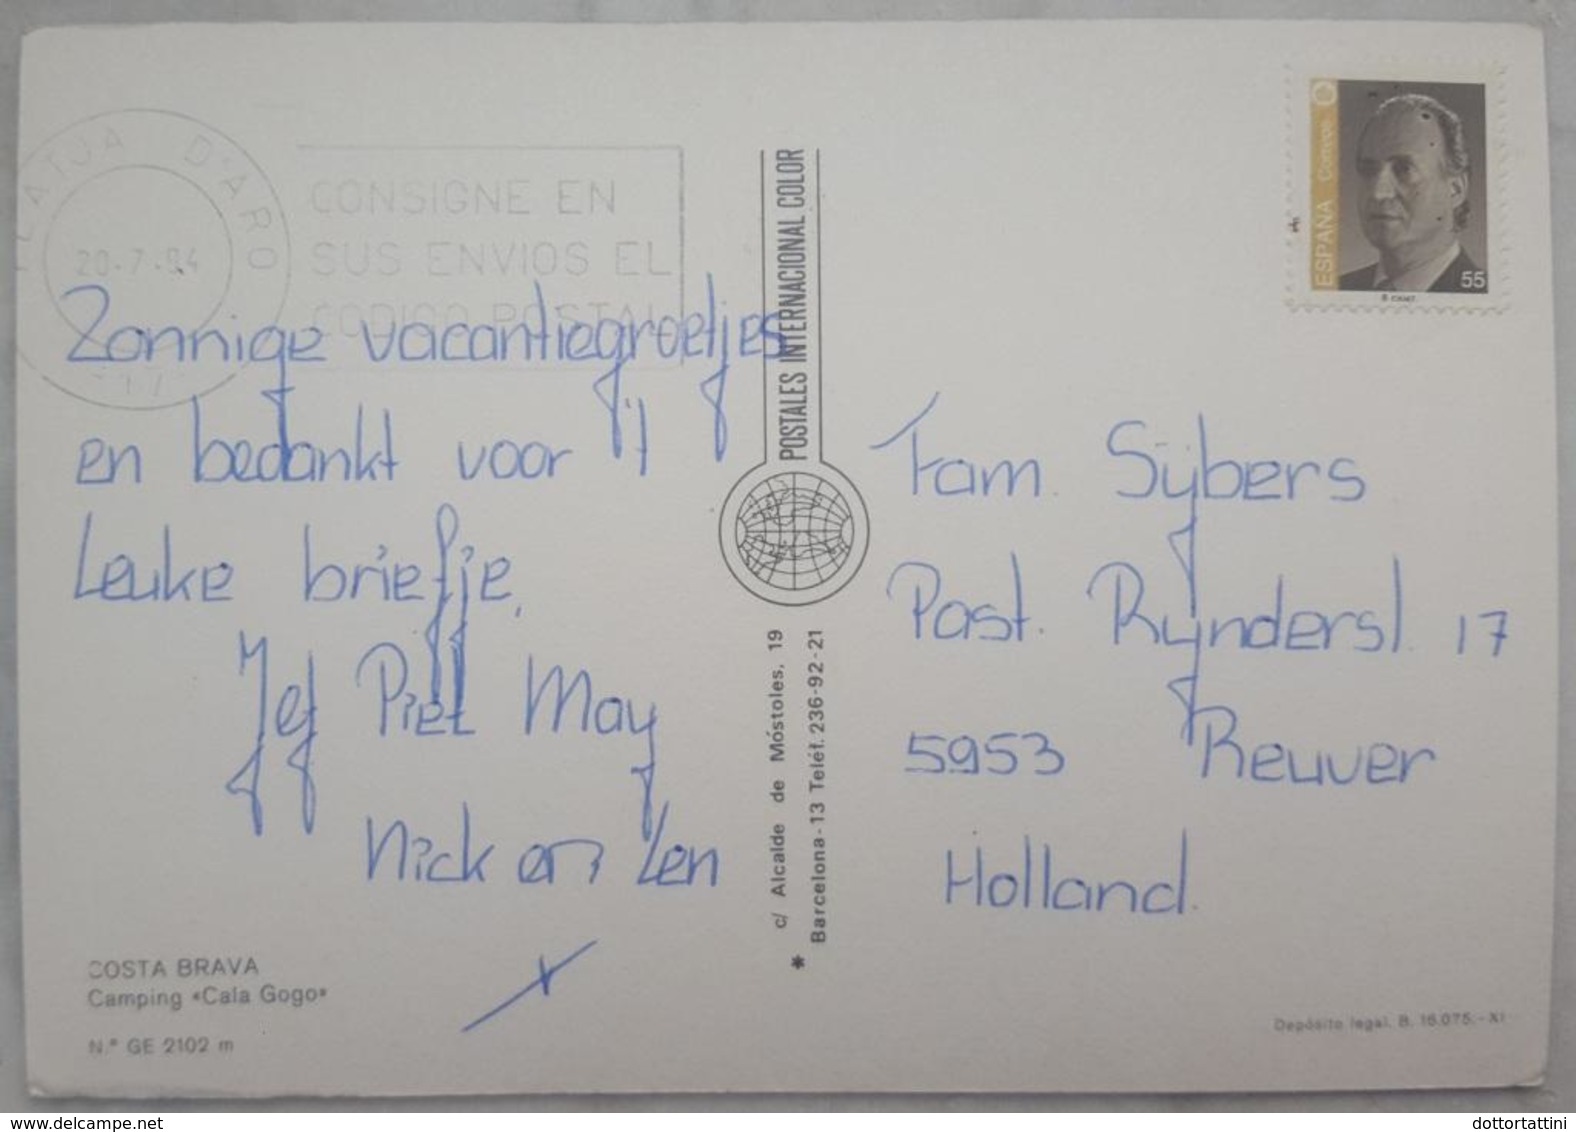 PLATJA D'ARO
20-7-94
CONSIGNE EN
SUS ENVIOS EL
CODIGO POSTAL
Zonnige vacantiegroetjes
en bedankt voor 't
Leuke briefje,
Jef Piet May
Nick en Len
x
COSTA BRAVA
Camping «Cala Gogo»
N.º GE 2102 m
POSTALES INTERNACIONAL COLOR
c/ Alcalde de Móstoles, 19
* Barcelona-13 Teléf. 236-92-21
ESPAÑA Correos
55
Fam. Sijbers
Past. Rijnderst. 17
5953 Reuver
Holland.
Depósito legal. B. 16.075.-XI
dottortattini